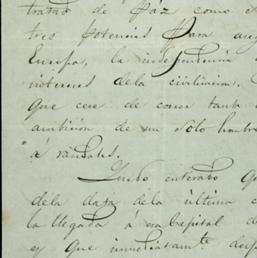 tratado de Páz como
tres potencias para
Europa, la independencia
intereses dela civilización.
que cese de correr tanta
ambición de un solo hombre
"á raudales.
Quedo enterado
dela data dela última
la llegada á esa Capital d
ey que inmediatamte desp